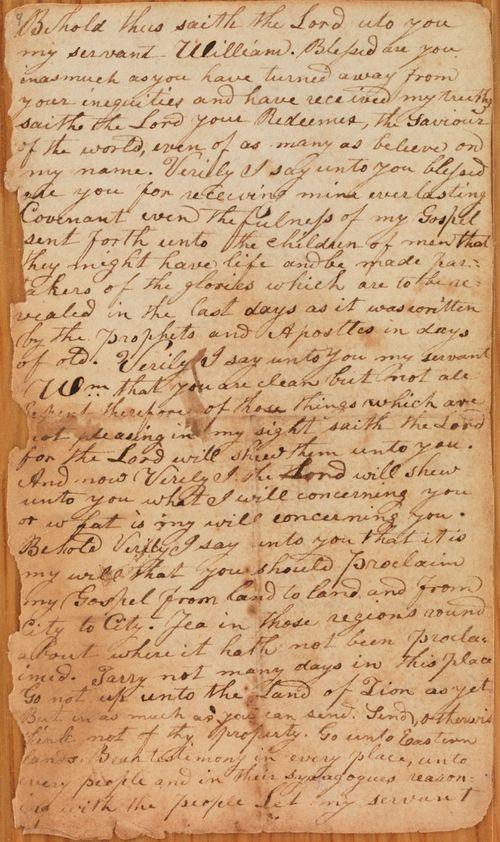 Behold thus saith the Lord uto you
my servant William. Blessed are you
inasmuch as you have turned away from
your inequities and have received my truths
saith the Lord your Redeemer, the Saviour
of the world, even of as many as believe on
my name. Verily I say unto you blessed
are you for receiving mine everlasting
Covenant even the Fulness of my Gospel
sent forth unto the children of men that
they might have life and be made par-
takers of the glories which are to be re-
vealed in the last days as it was written
by the Prophets and Apostles in days
of old. Verily I say unto you my servant
Wm that you are clean but not all
repent therefore of those things which are
not pleasing in my sight saith the Lord
for the Lord will shew them unto you.
And now Verily I the Lord will shew
unto you what I will concerning you
or what is my will concerning you.
Behold Verily I say unto you that it is
my will that you should Proclaim
my Gospel from land to land and from
City to City. Yea in those regions round
about where it hath not been Procla-
imed. Tarry not many days in this place
Go not up unto the Land of Zion as yet
But in as much as you can send. Send, otherwis
think not of thy Property. Go unto Eastern
lands. Bear testimony in every place, unto
every people and in their synagogues reason-
ing with the people Let my servant